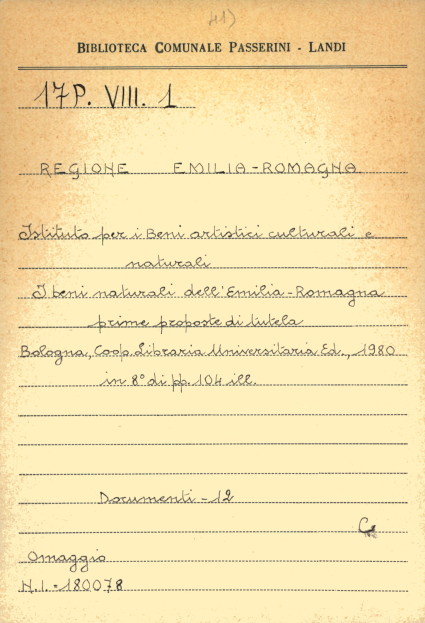 41)
BIBLIOTECA COMUNALE PASSERINI - LANDI
17P. VIII. 1
REGIONE EMILIA-ROMAGNA.
Istituto per i Beni artistici culturali e
naturali
I beni naturali dell'Emilia-Romagna
prime proposte di tutela
Bologna, Coop. Libraria Universitaria Ed., 1980
in 8° di pp. 104 ill.
Documenti - 12
Omaggio
N.I. - 180078